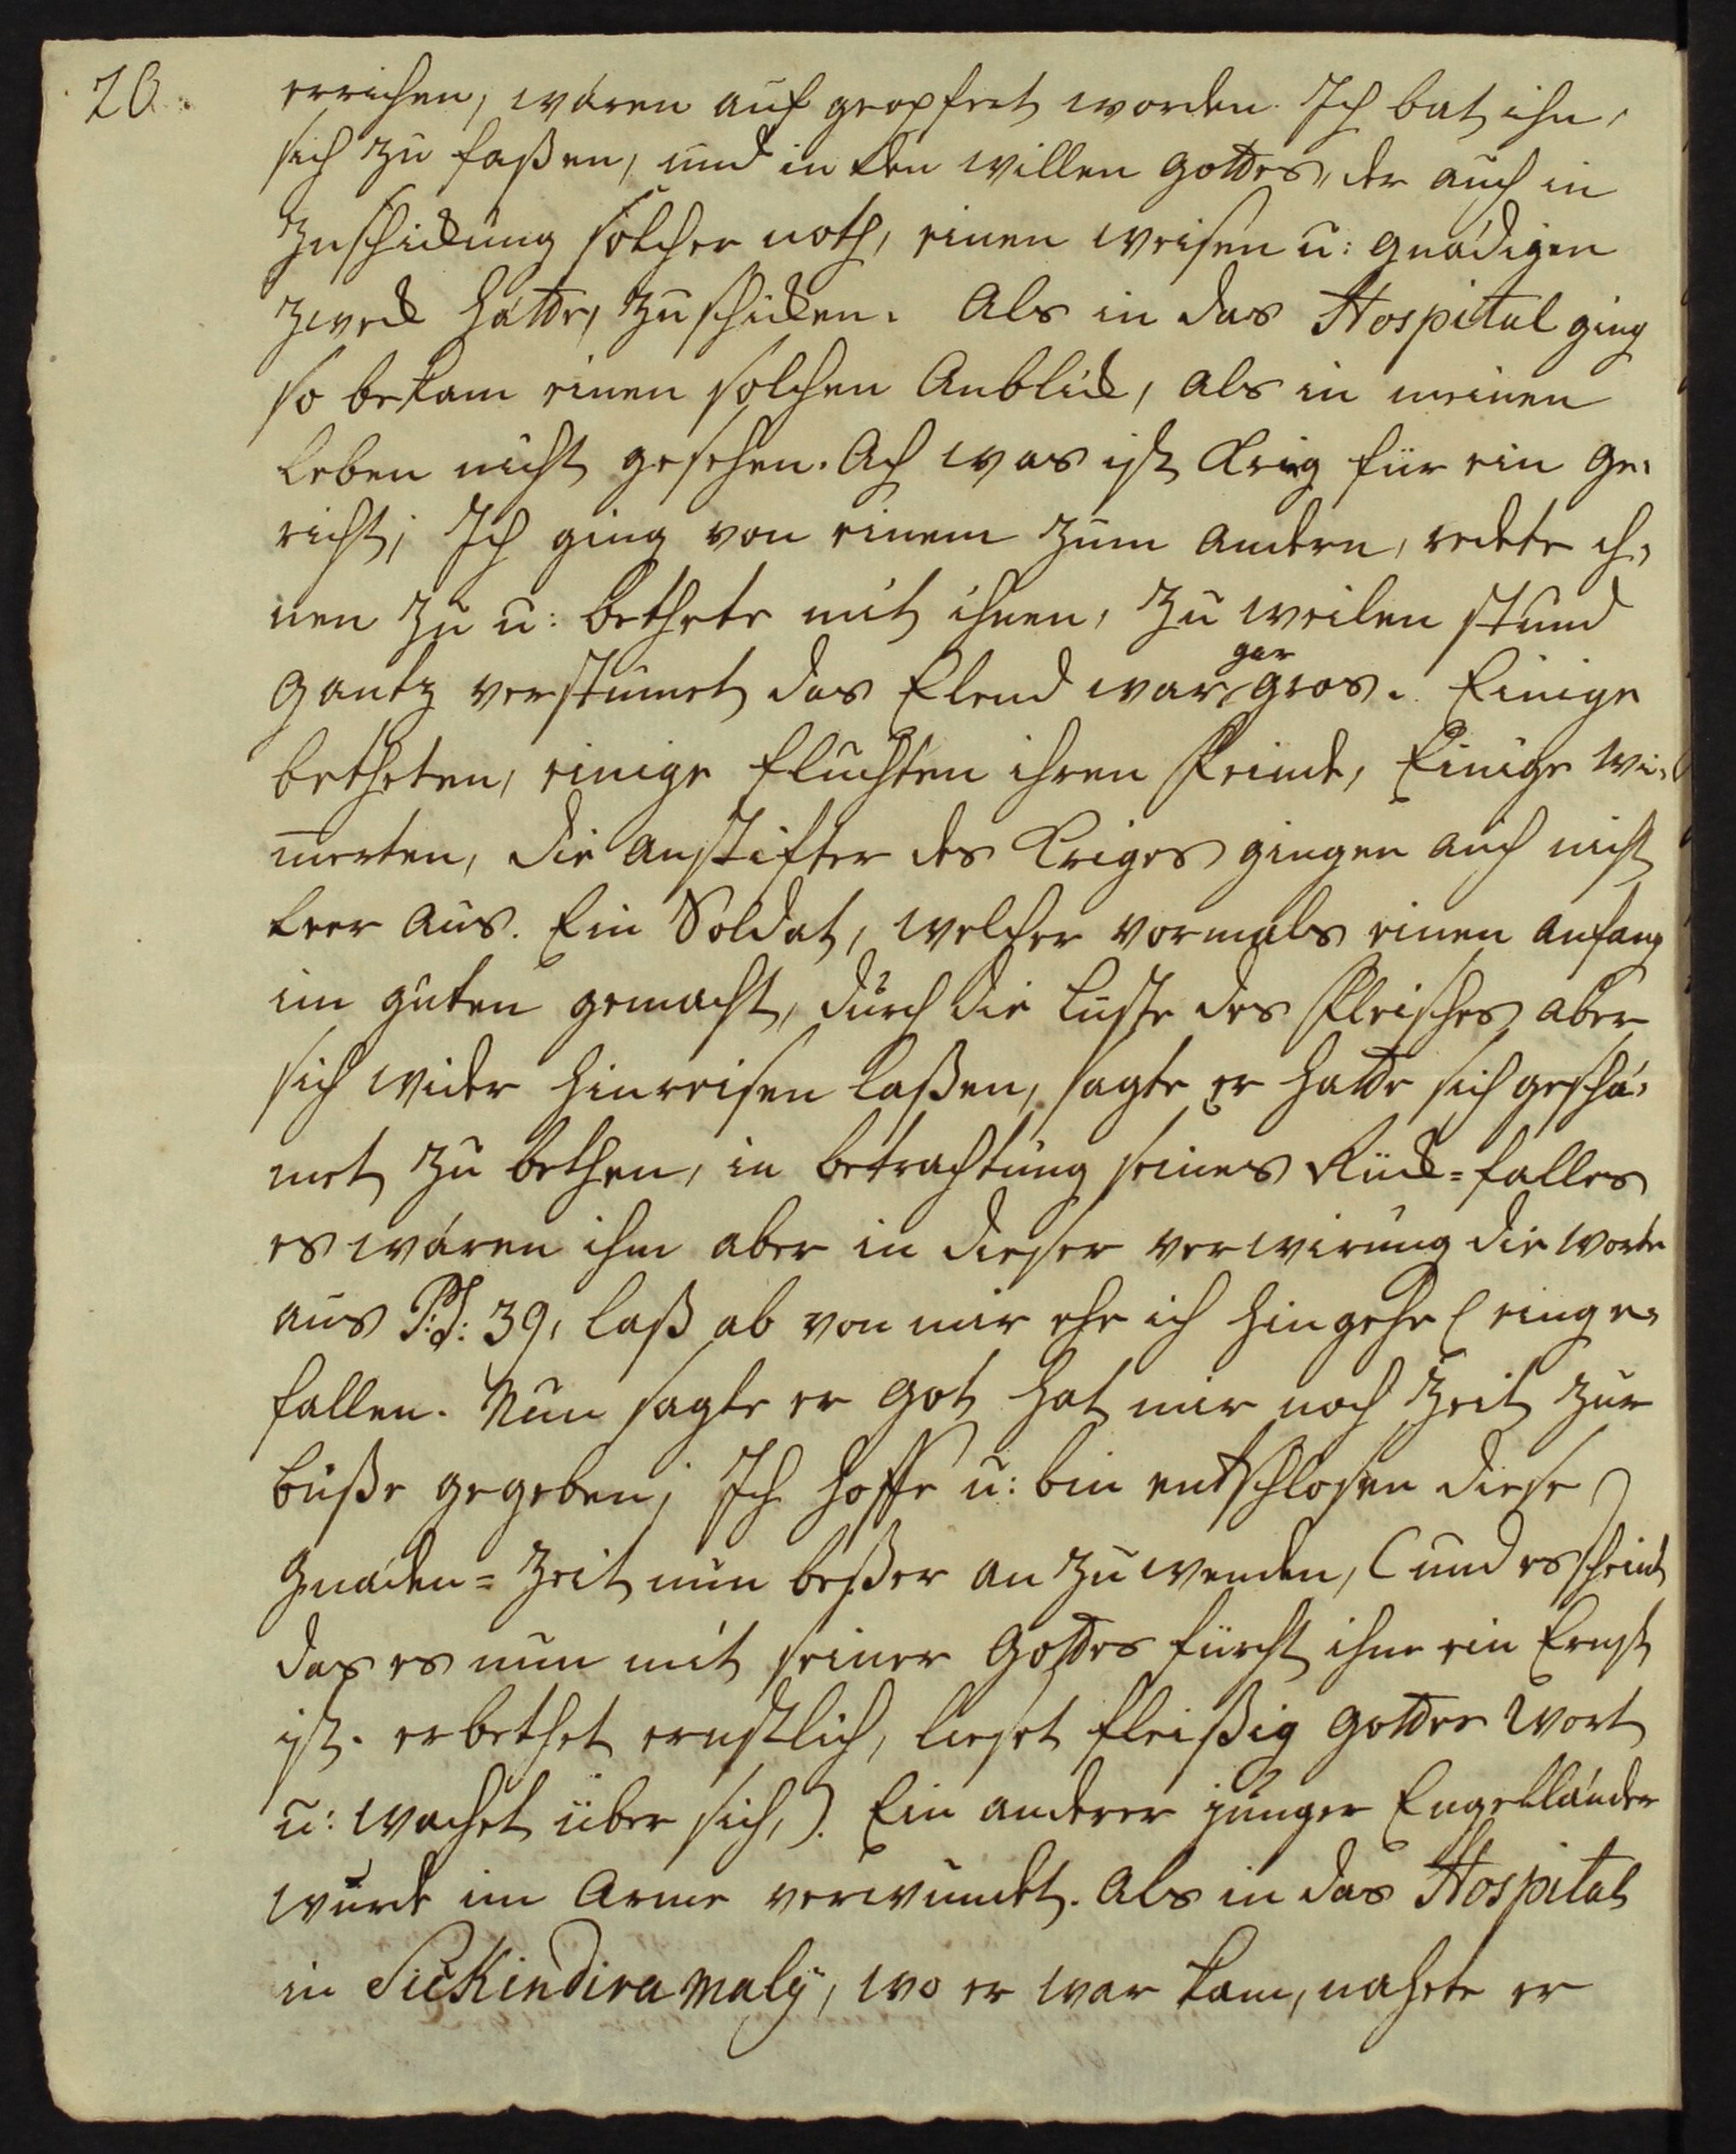 20.
errichen, wáren auf geopfert worden. Ich bat ihn,
sich zu faßen, und in den willen Gottes, der auch in
Zuschickung solcher noth, einen weisen u: gnádigen
Zweck hátte, zu schicken. Als in das Hospital ging
so bekam einen solchen Anblick, als in meinen
Leben nicht gesehen. Ach was ist Krig für ein Ge-
richt; Ich ging von einem zum andern, redete ih-
nen zu u: bethete mit ihnen, zu weilen stund
gantz verstumet das Elend war gar gros. Einige
betheten, einige fluchten ihren Feinde, Einige wi-
m̅erten, die Anstifter des Kriges gingen auch nicht
leer aus. Ein Soldat, welcher vormals einen anfang
im guten gemacht, durch die Luste des Fleisches aber
sich wider hinreisen laßen, sagte er hatte sich geschá-
met zu bethen, in betrachtung seines Rück=falles
es wáren ihm aber in dieser verwirung die worte
aus Ps: 39, laß ab von mir ehe ich hingehe eing e-
fallen. Nun sagte er Got hat mir noch Zeit zur
Buße gegeben; Ich hoffe u: bin entschlosen diese
Gnáden=Zeit nun beßer an zu wenden, (und es scheint
das es nun mit seiner Gottes furcht ihme ein Ernst
ist. er bethet ernstlich, lieset fleißig Gottes Wort
u: wachet über sich,). Ein anderer junger Engelländer
wurde im Arme verwundet. Als in das Hospital
in Sickindiramalÿ, wo er war kam, nahete er